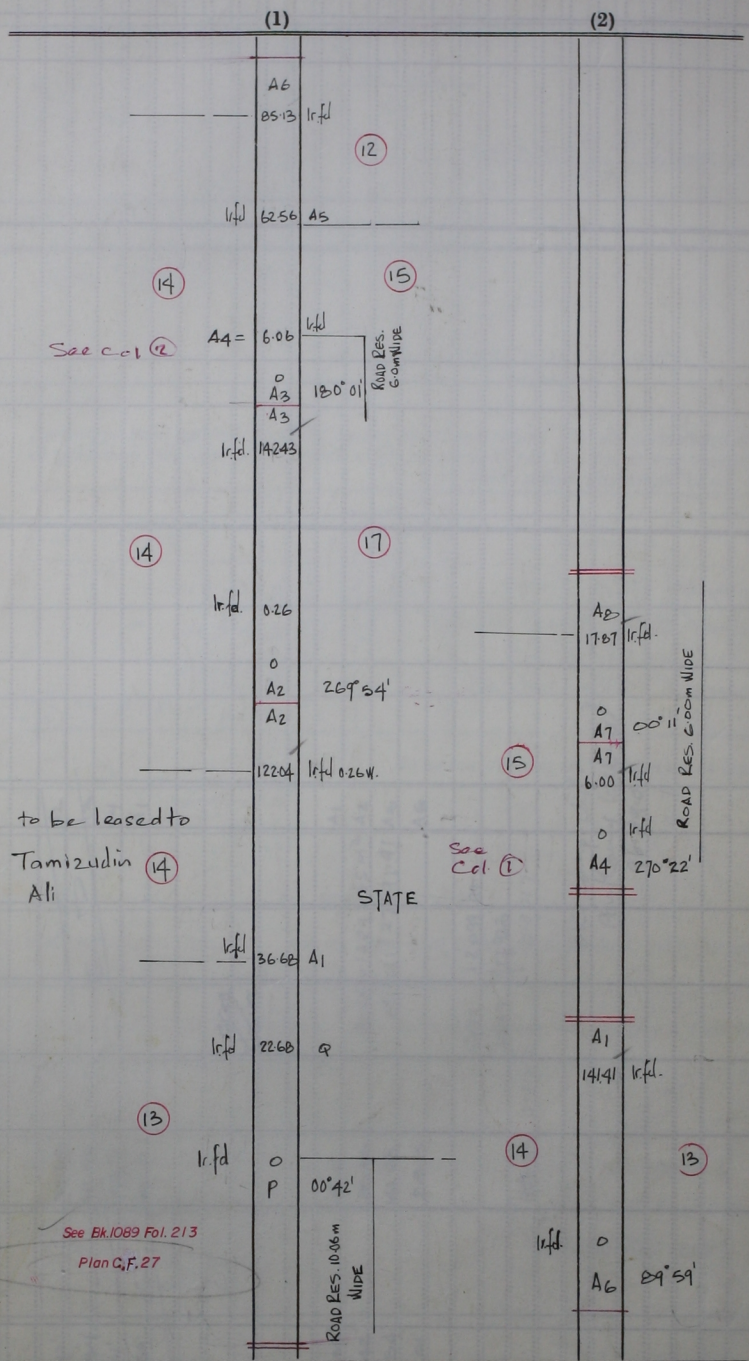 (1)
A6
85.13 Ir.fd
12
Ir.fd 62.56 A5
14
15
See Col 2
A4 = 6.06 Ir.fd
ROAD RES.
6.0m WIDE
0
A3 180°01'
A3
Ir.fd. 142.43
14
17
Ir.fd. 0.26
0
A2 269°54'
A2
122.04 Ir.fd 0.26 W.
to be leased to
Tamizudin 14
Ali
STATE
Ir.fd 36.68 A1
Ir.fd 22.68 Q
13
Ir.fd 0
P 00°42'
ROAD RES. 10.06m
WIDE
See Bk.1089 Fol. 213
Plan C.F. 27
(2)
A8
17.87 Ir.fd.
0
A7 00°11'
A7
15
6.00 Ir.fd
ROAD RES. 6.00m WIDE
0 Ir.fd
See
Col. 1
A4 270°22'
A1
141.41 Ir.fd.
14
13
Ir.fd. 0
A6 89°59'